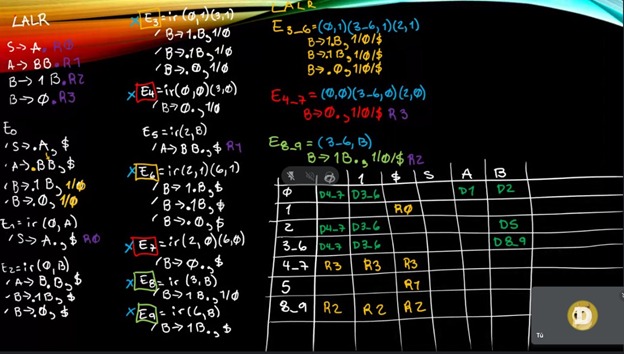 LALR
S→A. R0
A→BB. R1
B→1B. R2
B→0. R3
E0
S→.A, $
A→.BB, $
B→.1B, 1/0
B→.0, 1/0
E1=ir(0,A)
S→A., $ R0
E2=ir(0,B)
A→B.B, $
B→.1B, $
B→.0, $
x E3=ir(0,1)(3,1)
B→1.B, 1/0
B→.1B, 1/0
B→.0, 1/0
x E4=ir(0,0)(3,0)
B→0., 1/0
E5=ir(2,B)
A→BB., $ R1
x E6=ir(2,1)(6,1)
B→1.B, $
B→.1B, $
B→.0, $
x E7=ir(2,0)(6,0)
B→0., $
x E8=ir(3,B)
B→1B., 1/0
x E9=ir(6,B)
B→1B., $
LALR
E3_6=(0,1)(3_6,1)(2,1)
B→1.B, 1/0/$
B→.1B, 1/0/$
B→.0, 1/0/$
E4_7=(0,0)(3_6,0)(2,0)
B→0., 1/0/$ R3
E8_9=(3_6,B)
B→1B., 1/0/$ R2
0 1 $ S A B
0 D4_7 D3_6 D1 D2
1 R0
2 D4_7 D3_6 D5
3_6 D4_7 D3_6 D8_9
4_7 R3 R3 R3
5 R1
8_9 R2 R2 R2
D
Tú